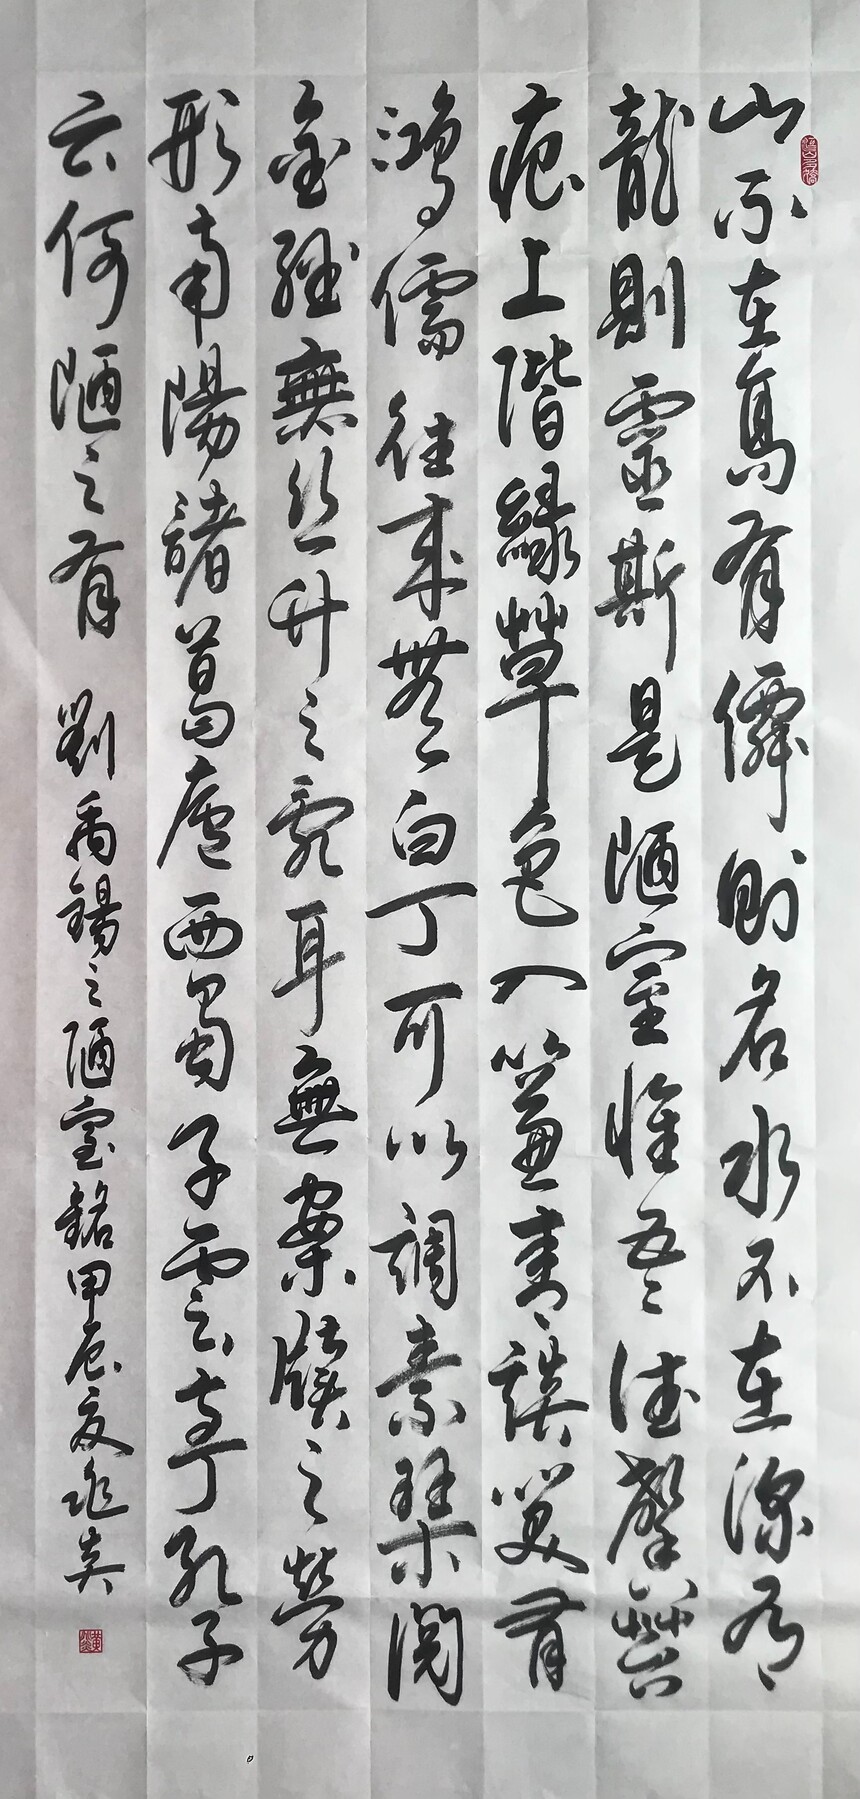 山不在高有僊則名水不在深有
龍則靈斯是陋室惟吾德馨苔
痕上階綠草色入簾青談笑有
鴻儒往來無白丁可以調素琴閱
金經無絲竹之亂耳無案牘之勞
形南陽諸葛廬西蜀子雲亭孔子
云何陋之有 劉禹錫之陋室銘甲辰夏